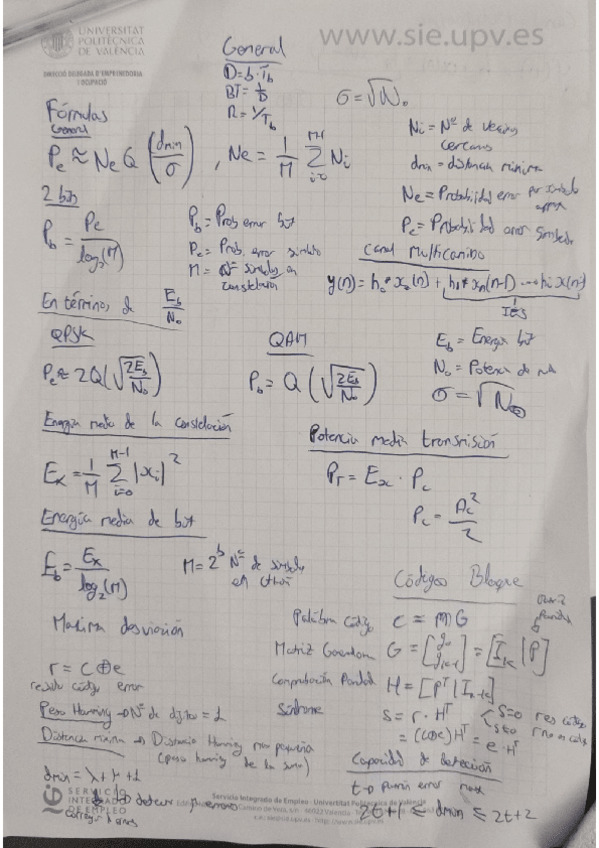 UNIVERSITAT
POLITÈCNICA
DE VALÈNCIA
www.sie.upv.es
DIRECCIÓ DELEGADA D'EMPRENEDORIA
I OCUPACIÓ
General
D = b · T_b
BT = 1/D
R = 1/T_b
σ = √N₀
Fórmulas
General
P_e ≈ N_e Q (d_min/σ) , N_e = 1/M Σ_{i=0}^{M-1} N_i
N_i = Nº de vecinos
cercanos
d_min = distancia mínima
N_e = Probabilidad error por símbolo
P_e = Probabilidad error símbolo
2 bits
P_b = P_e/log₂(M)
P_b = Prob error bit
P_e = Prob. error símbolo
M = Nº símbolos en
constelación
Canal Multicamino
y(n) = h₀*x₀(n) +
En términos de E_b/N₀
QPSK
P_e ≈ 2Q(√(2E_b/N₀))
QAM
P_b = Q(√(2E_b/N₀))
E_b = Energía bit
N₀ = Potencia de
σ = √N₀
Energía media de la constelación
E_x = 1/M Σ_{i=0}^{M-1} |x_i|²
Potencia media transmisión
P_T = E_x · P_c
P_c = A_c²/2
Energía media de bit
E_b = E_x/log₂(M)
M = 2^b Nº de símbolos
Códigos Bloque
Palabra código c = mG
Matriz Generadora G = [g₀ g_{k-1}] = [I_k | P]
Comprobación Paridad H = [P^T | I_{n-k}]
Síndrome s = r · H^T
= (c⊕e)H^T = e · H^T
s=0 r es código
s≠0 r no es código
Máxima desviación
r = c ⊕ e
código error
Peso Hamming → Nº de dígitos = 1
Distancia mínima → Distancia Hamming más pequeña
(peso hamming de la suma)
d_min = λ + γ + 1
detectar γ errores
corregir λ errores
Capacidad de detección
2t+1 ≤ d_min ≤ 2t+2
SERVICIO
INTEGRADO
DE EMPLEO
Servicio Integrado de Empleo · Universitat Politècnica de València